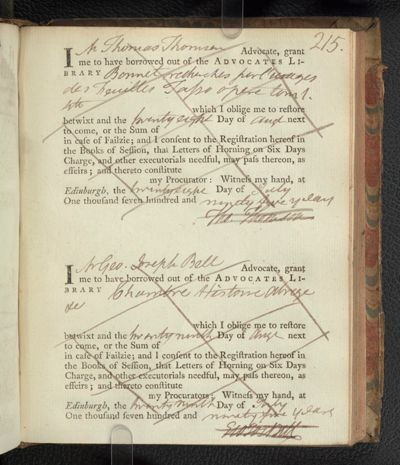 215.
I Mr Thomas Thomson Advocate, grant
me to have borrowed out of the ADVOCATES LI-
BRARY Bonnet recherches sur l'usages
des feuilles Tasso opere tom 1.
4to which I oblige me to restore
betwixt and the twentyeight Day of augt next
to come, or the Sum of
in case of Failzie; and I consent to the Registration hereof in
the Books of Session, that Letters of Horning on Six Days
Charge, and other executorials needful, may pass thereon, as
effeirs; and thereto constitute
my Procurator: Witness my hand, at
Edinburgh, the twentyeight Day of July
One thousand seven hundred and ninety five years
Tho. Thomson
I Mr Geo. Joseph Bell Advocate, grant
me to have borrowed out of the ADVOCATES LI-
BRARY Chambre Histoire abrege
de
which I oblige me to restore
betwixt and the twenty ninth Day of Augt next
to come, or the Sum of
in case of Failzie; and I consent to the Registration hereof in
the Books of Session, that Letters of Horning on Six Days
Charge, and other executorials needful, may pass thereon, as
effeirs; and thereto constitute
my Procurator: Witness my hand, at
Edinburgh, the twenty ninth Day of July
One thousand seven hundred and ninety five years
Geo Jos Bell